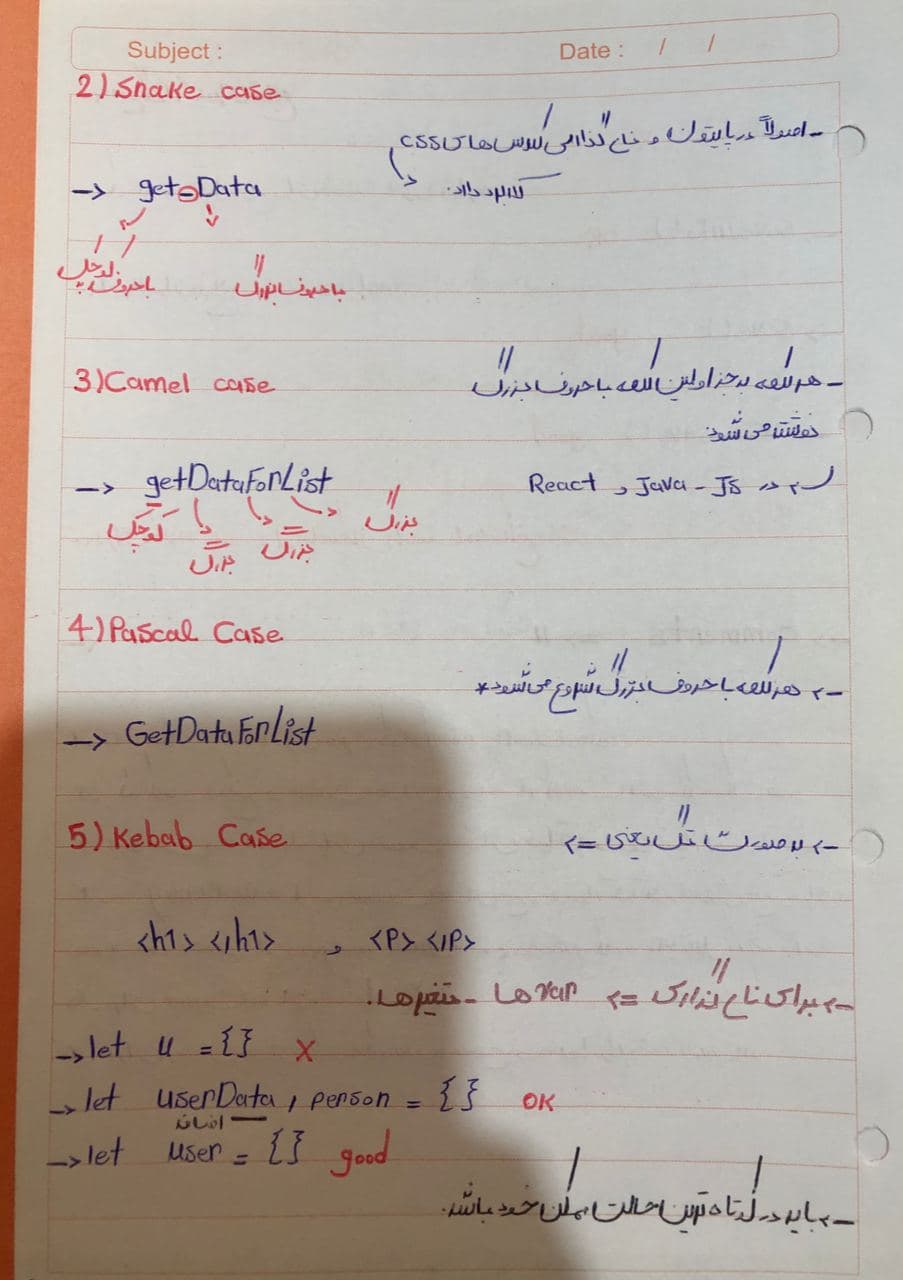 Subject : Date : / /
2) Snake case
- اصولاً در پایتون و نام گذاری کلاس های css
کاربرد دارد.
-> get_Data
با حروف کوچک با حروف بزرگ
3) Camel case
- هر کلمه به جز اولین کلمه با حروف بزرگ
نوشته می شود.
در React , Java - JS
-> getDataForList
کوچک بزرگ بزرگ بزرگ
4) Pascal Case
-> هر کلمه با حروف بزرگ شروع می شود*
-> GetDataForList
5) Kebab Case
-> به صورت تگ یعنی =>
<h1> </h1> , <P> </P>
-> برای نام گذاری => var ها - متغیرها.
-> let u = {} X
-> let userData , person = {} OK
اضافه
-> let user = {} good
-> باید در کوتاه ترین حالت ممکن خود باشد.